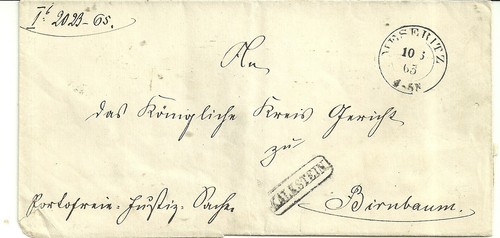 I.b 2023-65.
MESERITZ
10 5
65
4-5N
An
das Königliche Kreis Gericht
zu
KALKSTEIN
Birnbaum.
Portofreie-Justiz-Sache.